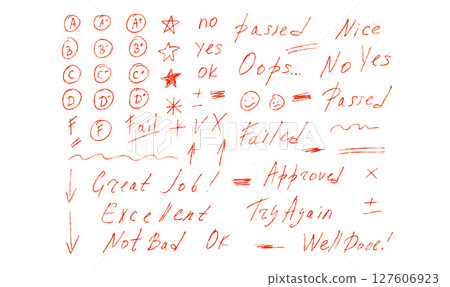 A A- A+ no passed Nice
B B- B+ yes Oops... No Yes
C C- C+ ok Passed
D D- D+ ±
F F Fail + V X Failed
Great Job! Approved ×
Excellent Try Again ±
Not Bad OK Well Done!
127606923